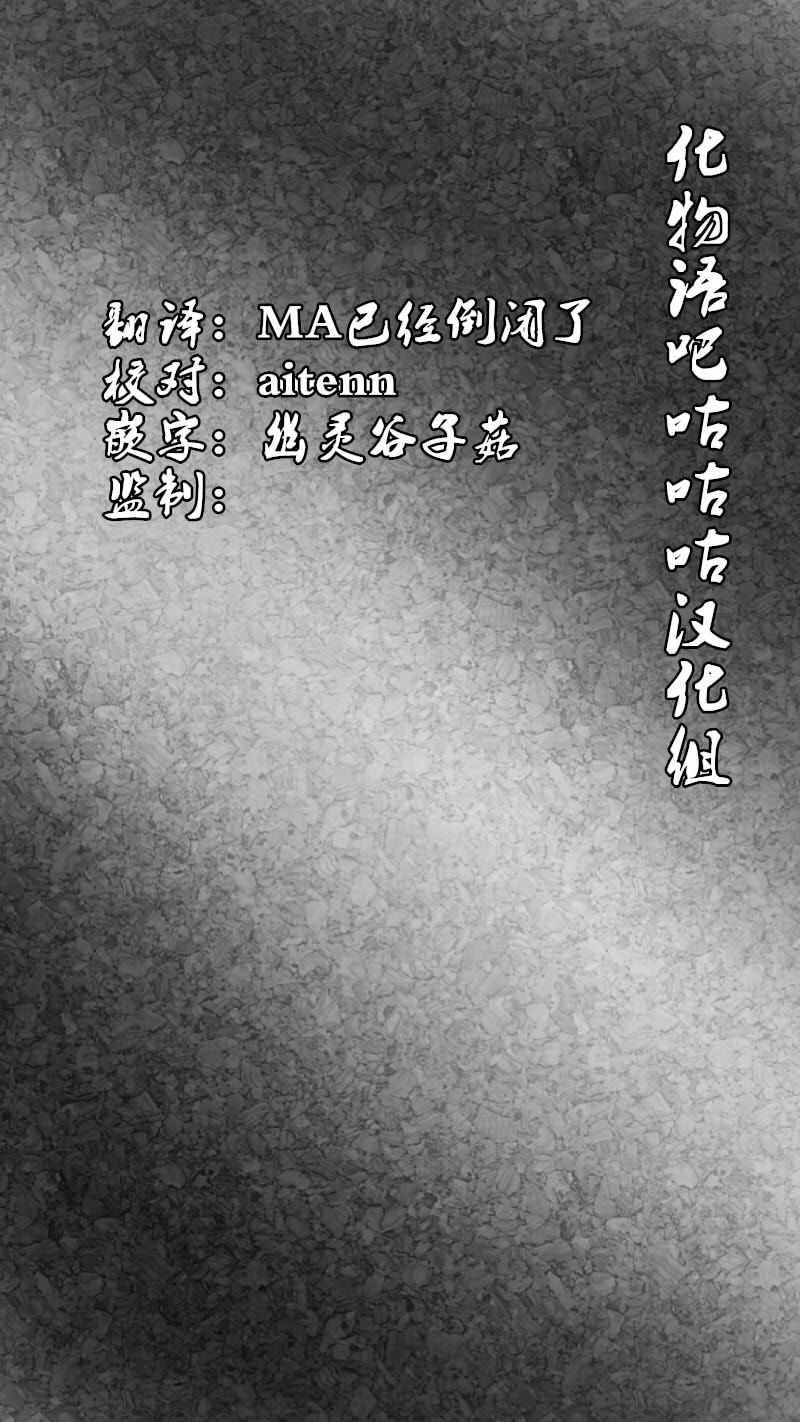 化物语吧咕咕咕汉化组
翻译：MA已经倒闭了
校对：aitenn
嵌字：幽灵谷子菇
监制：